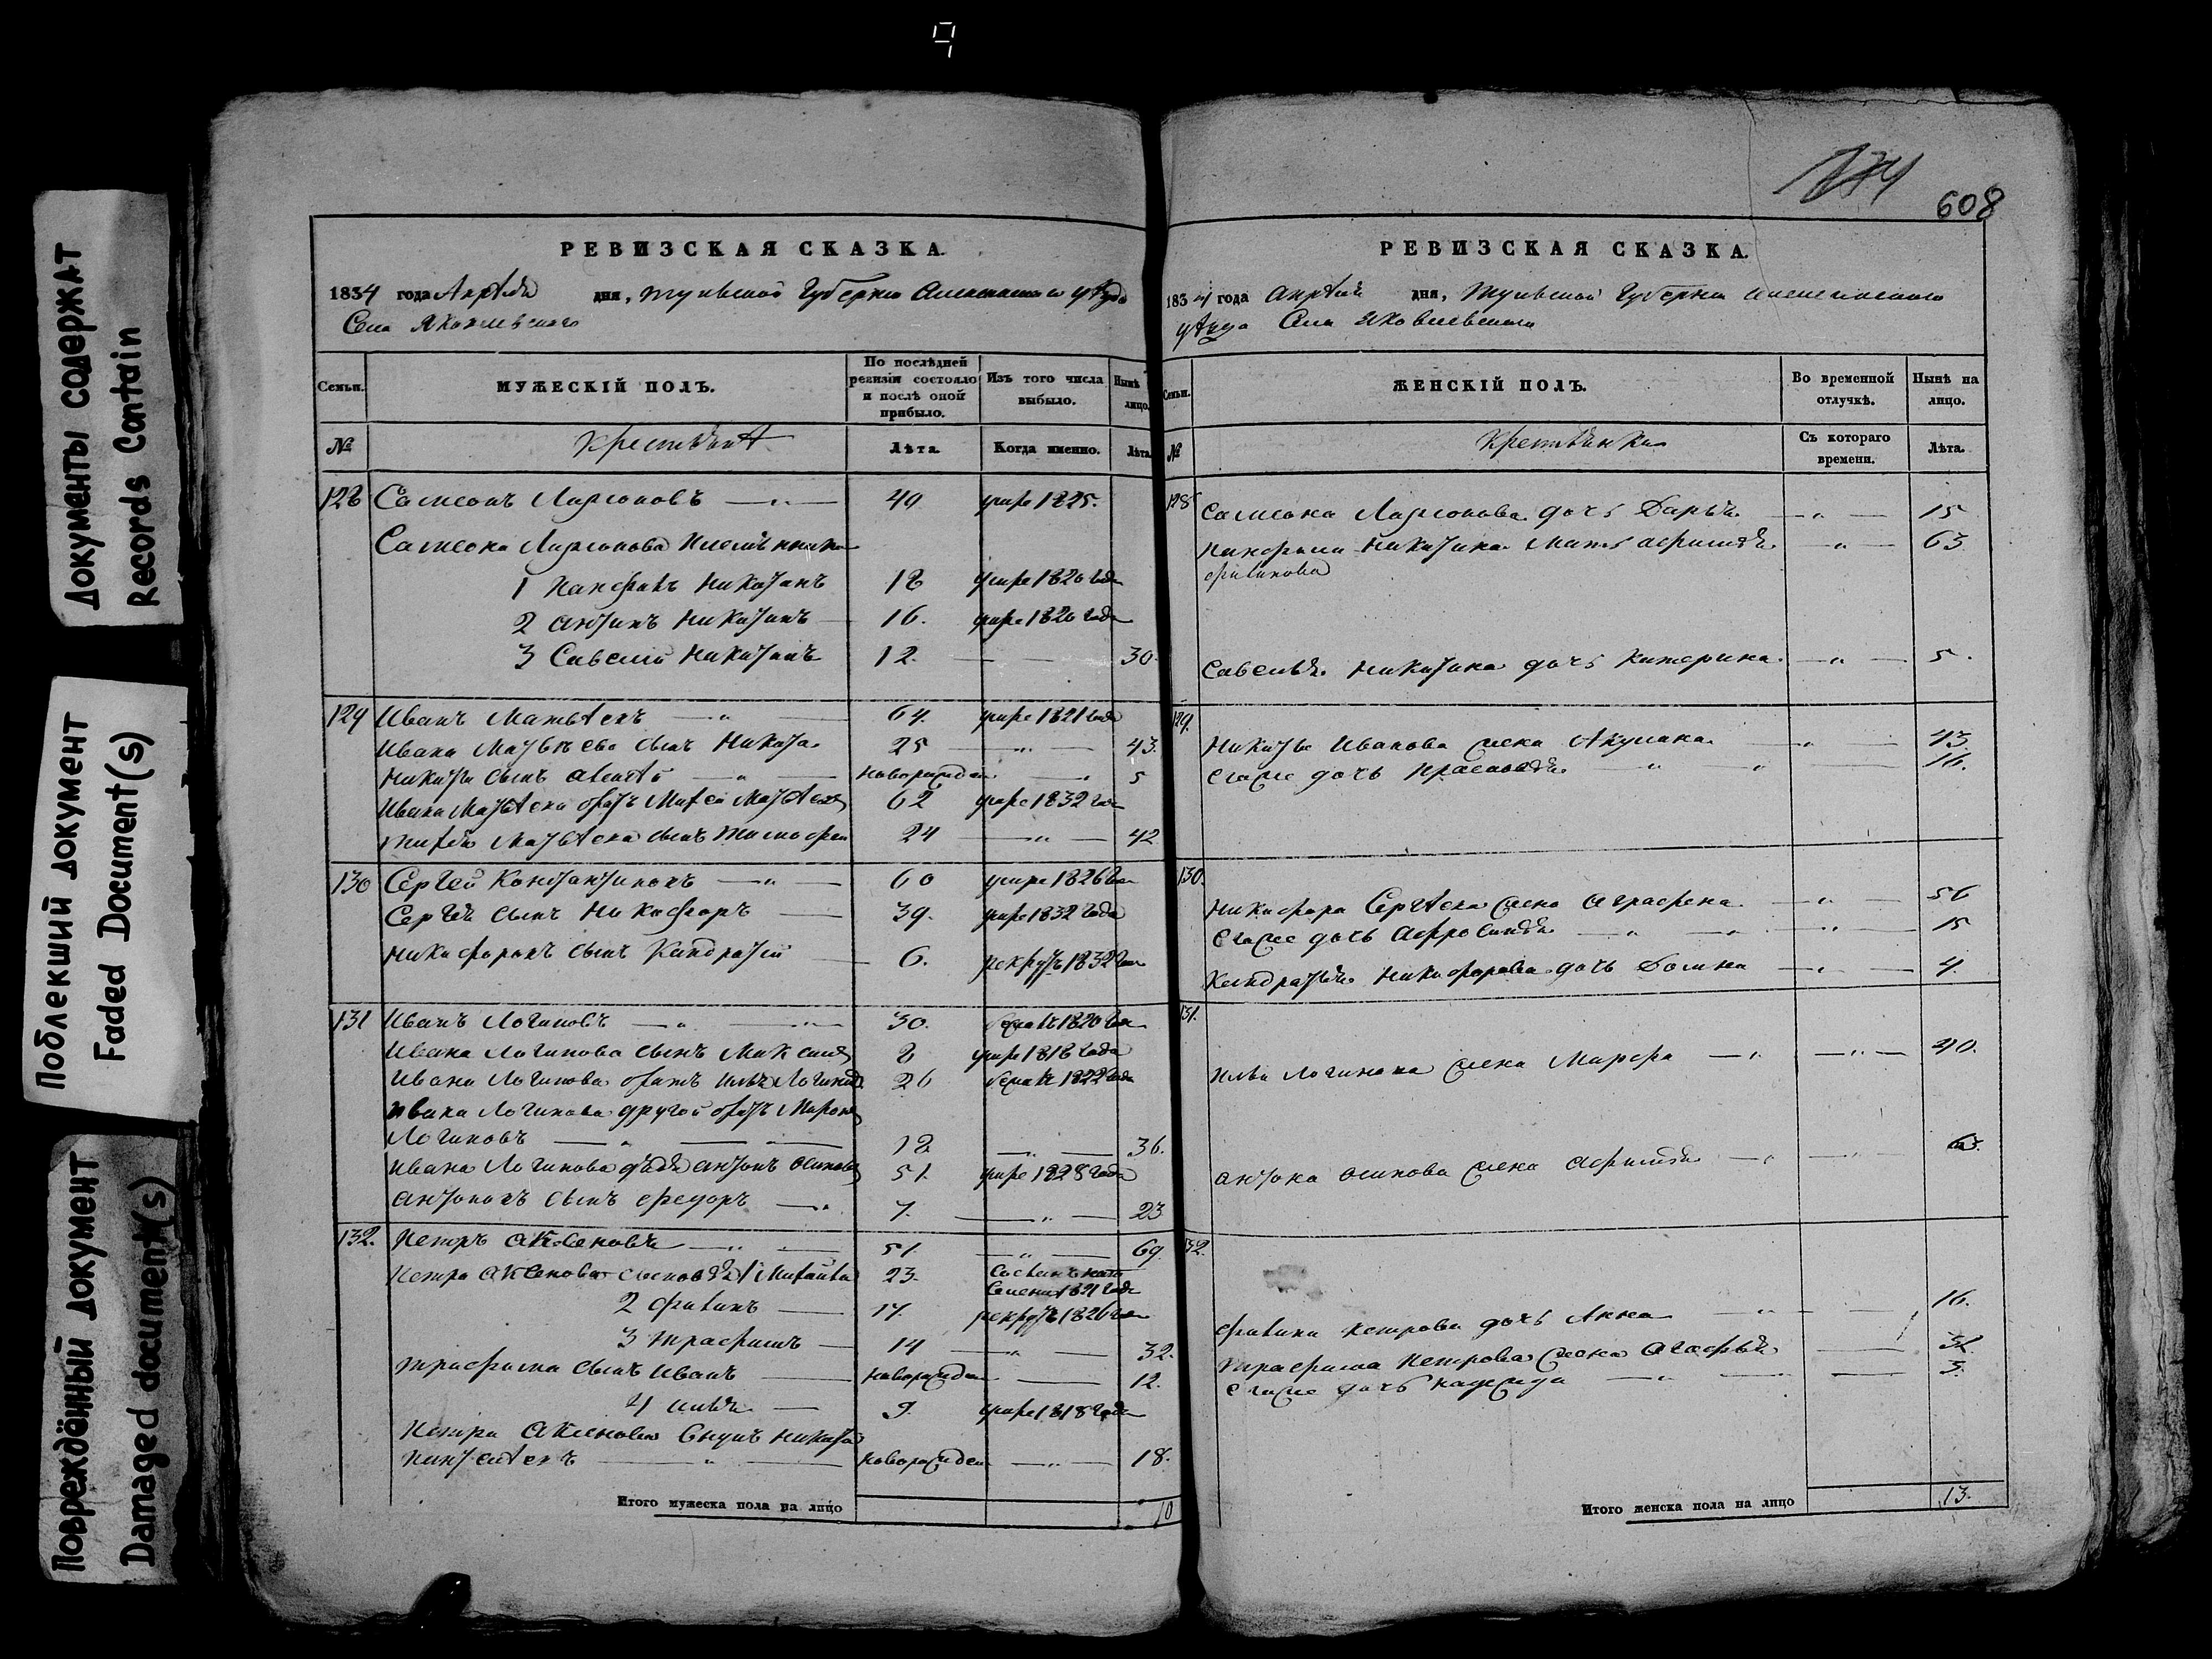 9
Документы содержат
Records Contain
Поблекший документ
Faded Document(s)
Повреждённый документ
Damaged document(s)
РЕВИЗСКАЯ СКАЗКА.
1834 года Апрѣля дня, Тульской Губернии уѣзда
Села Яковлевскаго
Семьи. МУЖЕСКІЙ ПОЛЪ. По послѣдней ревизіи состояло и послѣ оной прибыло. Изъ того числа выбыло. Нынѣ лицо.
№ Крестьянѣ Лѣта. Когда именно. Лѣта.
128 Самсонъ Ларионовъ — 49 умре 1825.
Самсона Ларионова племянники
1 Панфилъ Никитинъ 18 умре 1820 года
2 Антипъ Никитинъ 16. умре 1820 года
3 Савелий Никитинъ 12. — — 30
129 Иванъ Матвѣевъ — 64. умре 1821 года
Ивана Матвѣева сынъ Никита 25 — 43.
Никиты сынъ новорожден — 5
Ивана Матвѣева братъ Михей Матвѣевъ 62 умре 1832 года
Михея Матвѣева сынъ Тимофей 24 — 42
130 Сергей Константиновъ — 60 умре 1826 года
Сергея сынъ Никифоръ — 39. умре 1832 года
Никифоровъ сынъ Кондратий — 6. рекрутъ 1832 года
131 Иванъ Логиновъ — 30. бежалъ 1820 года
Ивана Логинова сынъ Максимъ 8 умре 1818 года
Ивана Логинова братъ Илья Логиновъ 26 бежалъ 1822 года
Ивана Логинова другой братъ Миронъ
Логиновъ — 18 — 36.
Ивана Логинова дядя Антонъ Осиповъ 51. умре 1828 года
Антоновъ сынъ Федоръ — 7. — 23
132. Петръ Аксеновъ — 51 — 69.
Петра Аксенова сыновья 1 Михайла 23.
1821 года
2 Филипъ — 17. рекрутъ 1826 года
3 Трафимъ — 14 — 32.
Трафима сынъ Иванъ — новорожден — 12.
4 Илья — 9. умре 1818 года
Петра Аксенова внукъ Никита
— новорожден — 18.
Итого мужеска пола на лицо 10
608
РЕВИЗСКАЯ СКАЗКА.
1834 года Апрѣля дня, Тульской Губернии
уѣзда Села Яковлевскаго
Семьи. ЖЕНСКІЙ ПОЛЪ. Во временной отлучкѣ. Нынѣ на лицо.
№ Крестьянки Съ котораго времени. Лѣта.
128 Самсона Ларионова дочь Дарья — 15
Панфила Никитина мать Афимья — 63
Филипова
Савелья Никитина дочь Катерина — 5.
129. Никиты Иванова жена Акулина — 43.
Его же дочь Прасковья — 16.
130. Никифора Сергѣева жена Аграфена — 56
Его же дочь Афросинья — 15
Кондратья Никифорова дочь Домна — 4.
131. Ильи Логинова жена Марфа — 40.
Антона Осипова жена Афимья — 63.
132. Филипа Петрова дочь Анна — 16.
Трафима Петрова жена Агафья — 32.
Его же дочь Надежда — 3.
Итого женска пола на лицо 13.